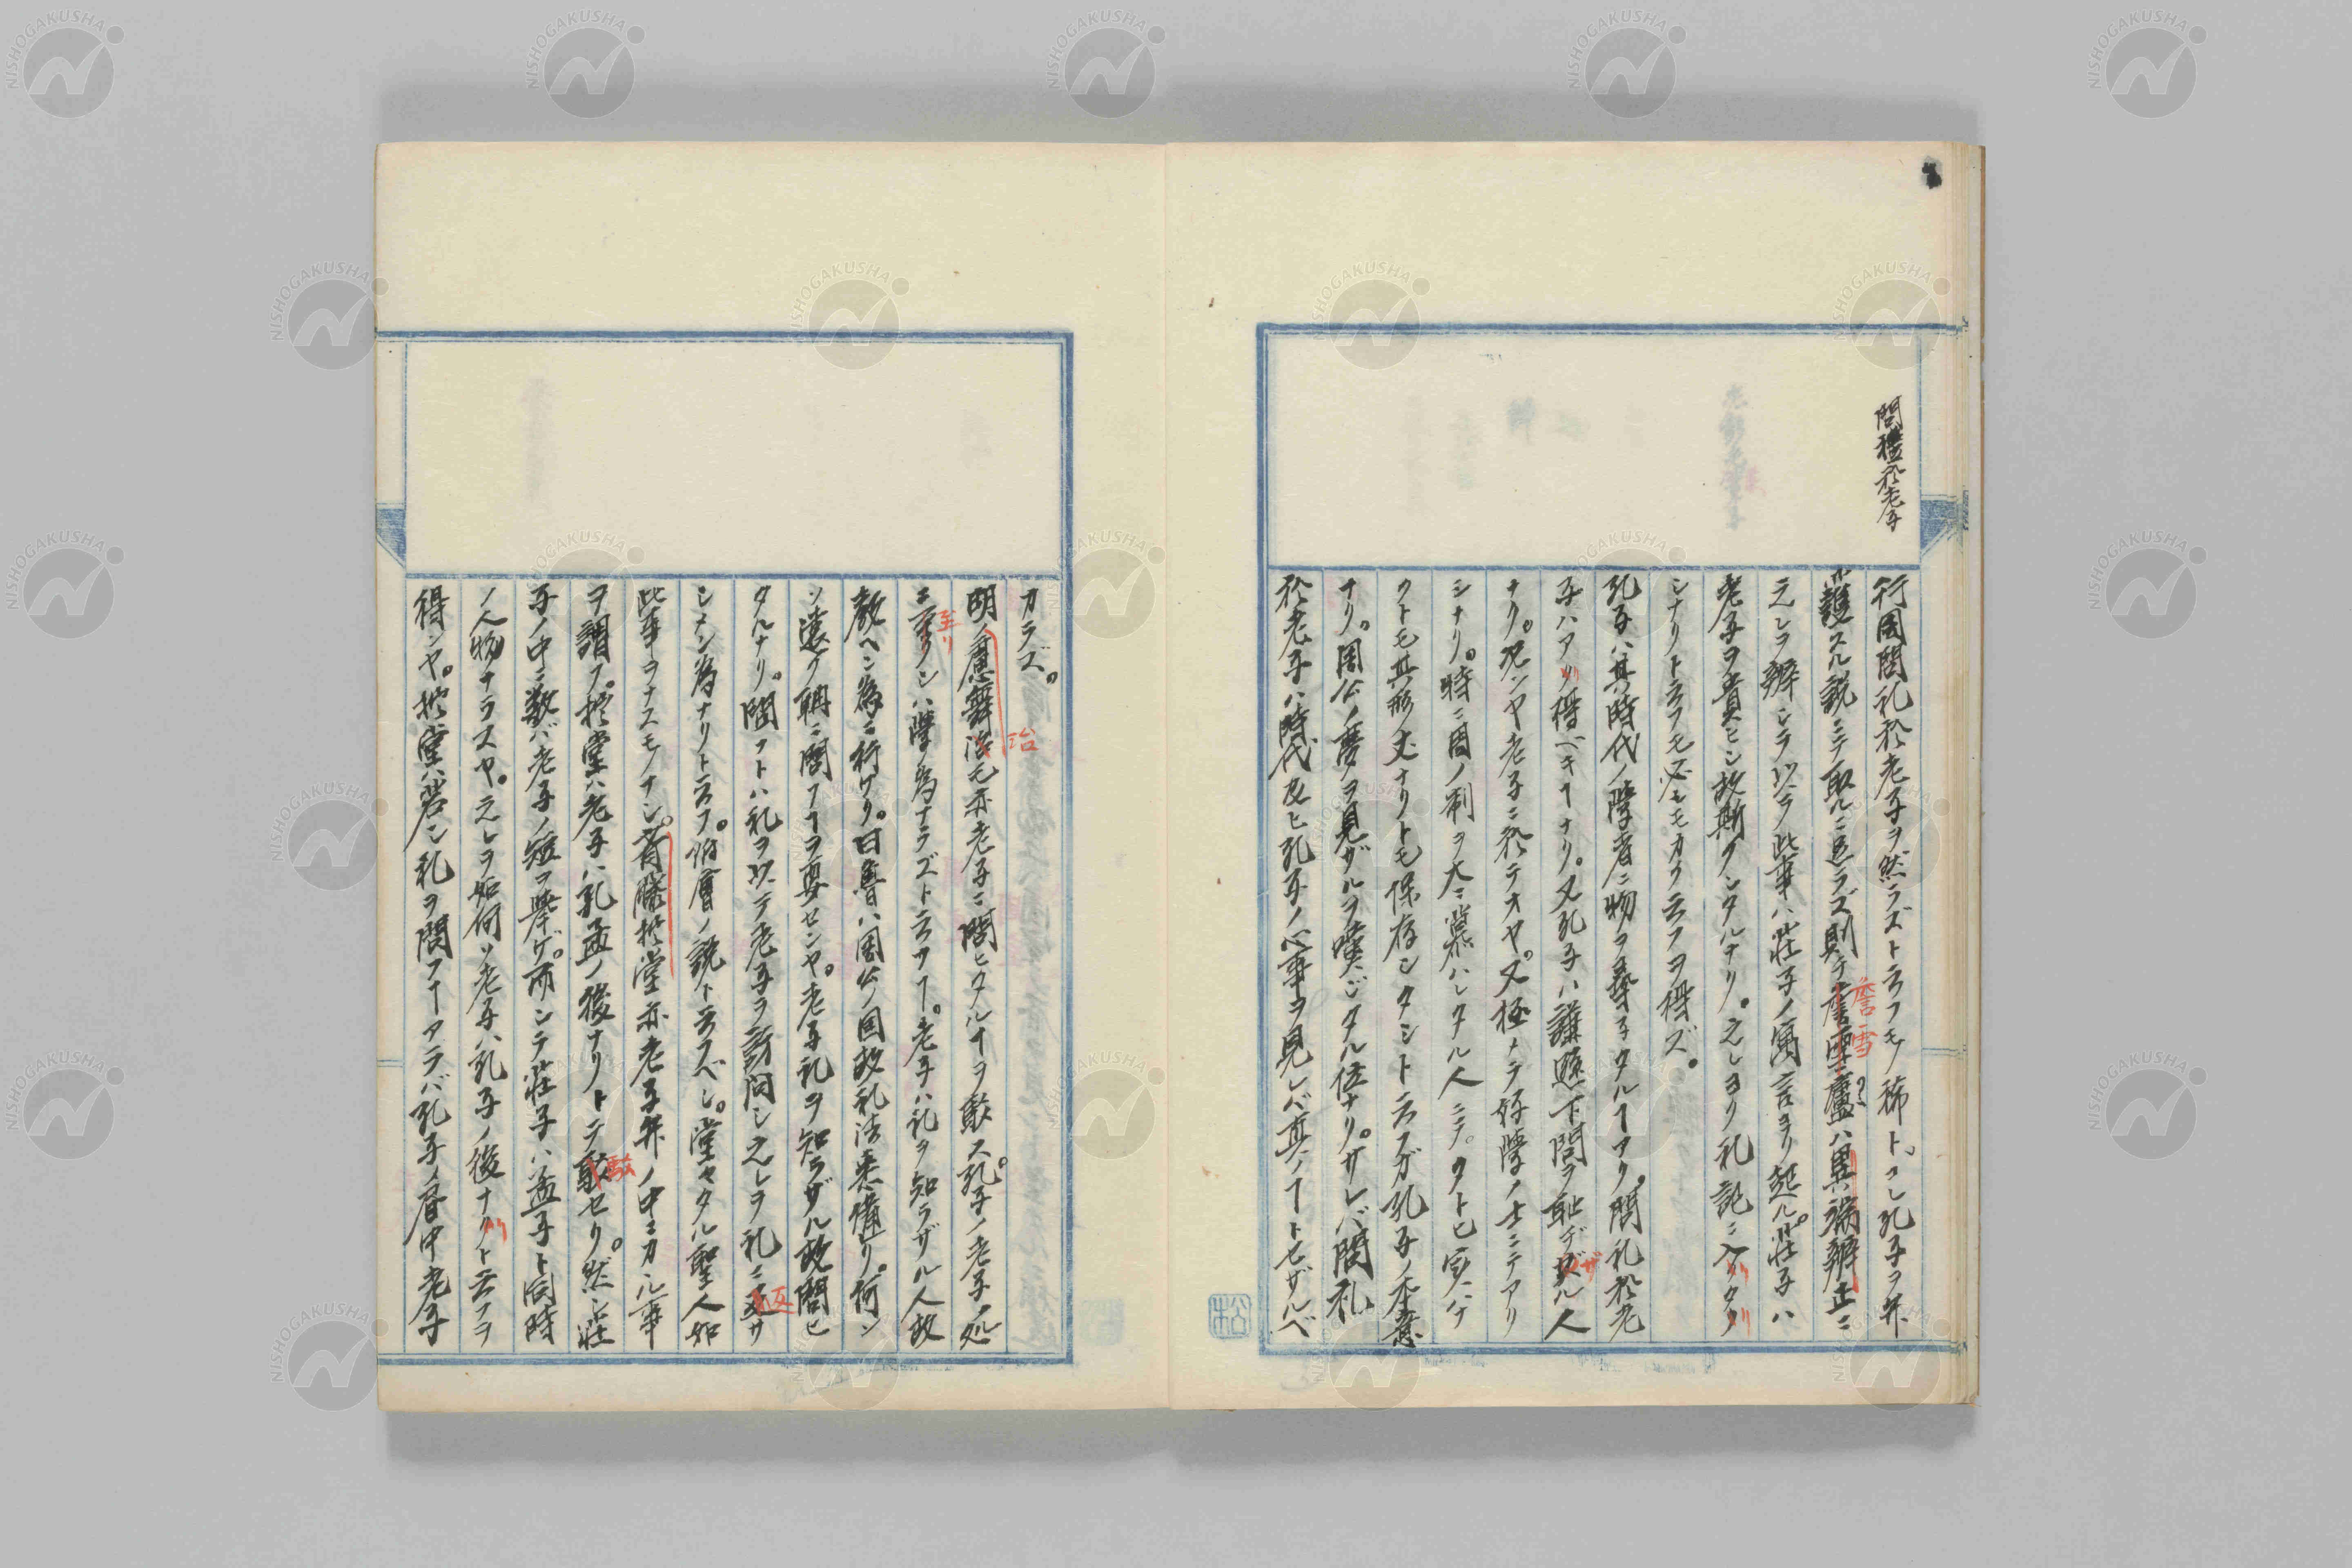 問禮於老子
行周問礼於老子ヲ然ラズト云フモノ稀ト。コレ孔子ヲ弁
護スル説ニテ取ルニ足ラズ則チ詹雪廬ハ異端辨正ニ
之レヲ辨シテ以テ此事ハ莊子ノ寓言ヨリ起ル。莊子ハ
老子ヲ貴ヒシ故斯クシタルナリ。之レヨリ礼記ニ入リタリ
シナリト云フモ必モモカク云フヲ得ズ。
孔子ハ其時代ノ学者ニ物ヲ尋子タルヿアリ。問礼於老
子ハアリ得ベキヿナリ。又孔子ハ謙遜下問ヲ耻デザル人
ナリ。况ンヤ老子ニ於テオヤ。又極メテ好学ノ士ニテアリ
シナリ。時ニ周ノ制ヲ大ニ慕ハレタル人ニテ。
クトモ其形丈ナリトモ保存シタシト云フガ孔子ノ本意
ナリ。周公ノ夢ヲ見ザルヲ嘆ジタル位ナリ。サレバ問礼
於老子ハ時代及ヒ孔子ノ心事ヲ見レバ真ノヿトセザルベ
カラズ。
明ノ焦舞治モ亦老子ニ問ヒタルヿヲ駁ス。孔子ノ老子ノ処
ニ至リシハ学ノ為ナラズト云フヿ。老子ハ礼ヲ知ラザル人故
教ヘン為ニ行ケリ。曰魯ハ周公ノ国故礼法悉備リ。何ン
ソ遠ク聃ニ問フヿヲ要センヤ。老子礼ヲ知ラザル故問ヒ
タルナリ。問フトハ礼ヲ以テ老子ヲ訪問シ之レヲ礼ニ返サ
シメン為ナリトス云フ。俗層ノ説ト云フベシ。堂々タル聖人如
此事ヲナスモノナシ。斉藤拙堂亦老子弁ノ中ニカル事
ヲ謂フ。拙堂ハ老子ハ孔孟ノ後ナリトテ駁セリ。然シ莊
子ノ中ニ数バ老子ノ短ヲ挙ゲ。而シテ莊子ハ孟子ト同時
ノ人物ナラスヤ。之レヲ如何ソ老子ハ孔子ノ後ナリト云フヲ
得ンヤ。拙堂ハ若シ礼ヲ問フヿアラバ孔子ノ眼中老子